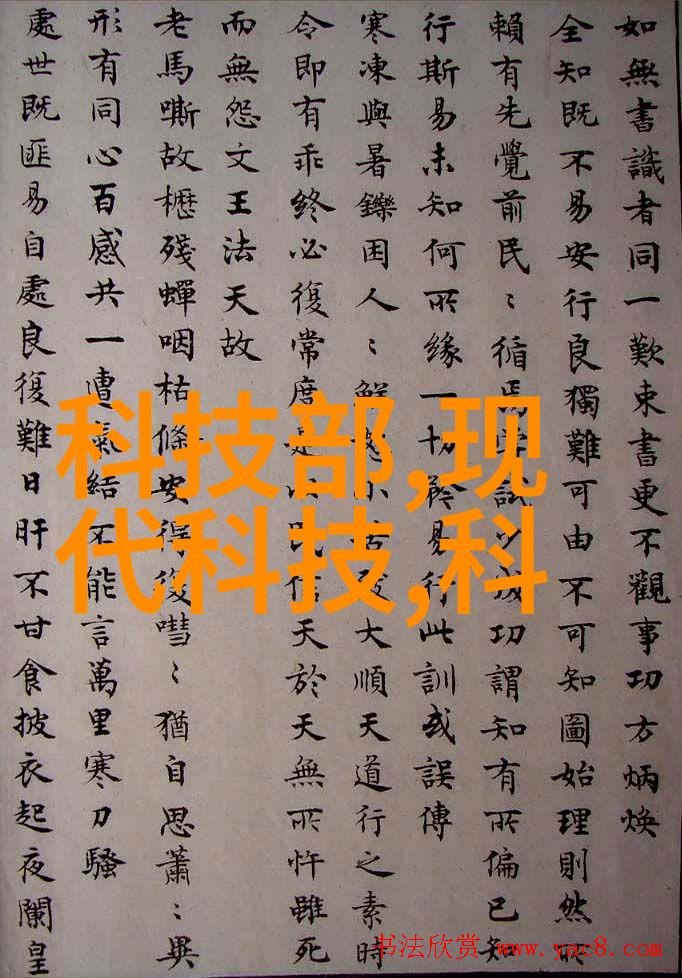 如無書識者同一歎束書更不觀事功方炳煥
全知既不易安行良獨難可由不可知圖始理則然所
賴有先覺前民〻循以成功謂知有所偏已知
行斯易未知何所緣一切易行此訓或誤傳
寒凍與暑鑠困人〻鮮大順天道行之素時
令即有乖終必復常度是以信天於天無所忤雖死
而無怨文王法天故
老馬嘶故櫪殘蟬咽枯條安得復嘒〻猶自思蕭〻異
形有同心百感共一遭氣結不能言萬里寒刀騷
處世既匪易自處良復難日旰不甘食披衣起夜闌皇
科技部,现
代科技,科
书法欣赏 www.yac8.com